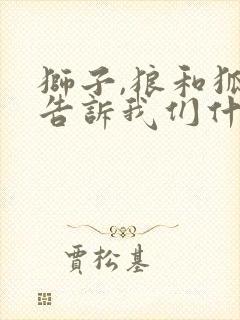 獅子,狼和狐
告訴我们什
賈松基